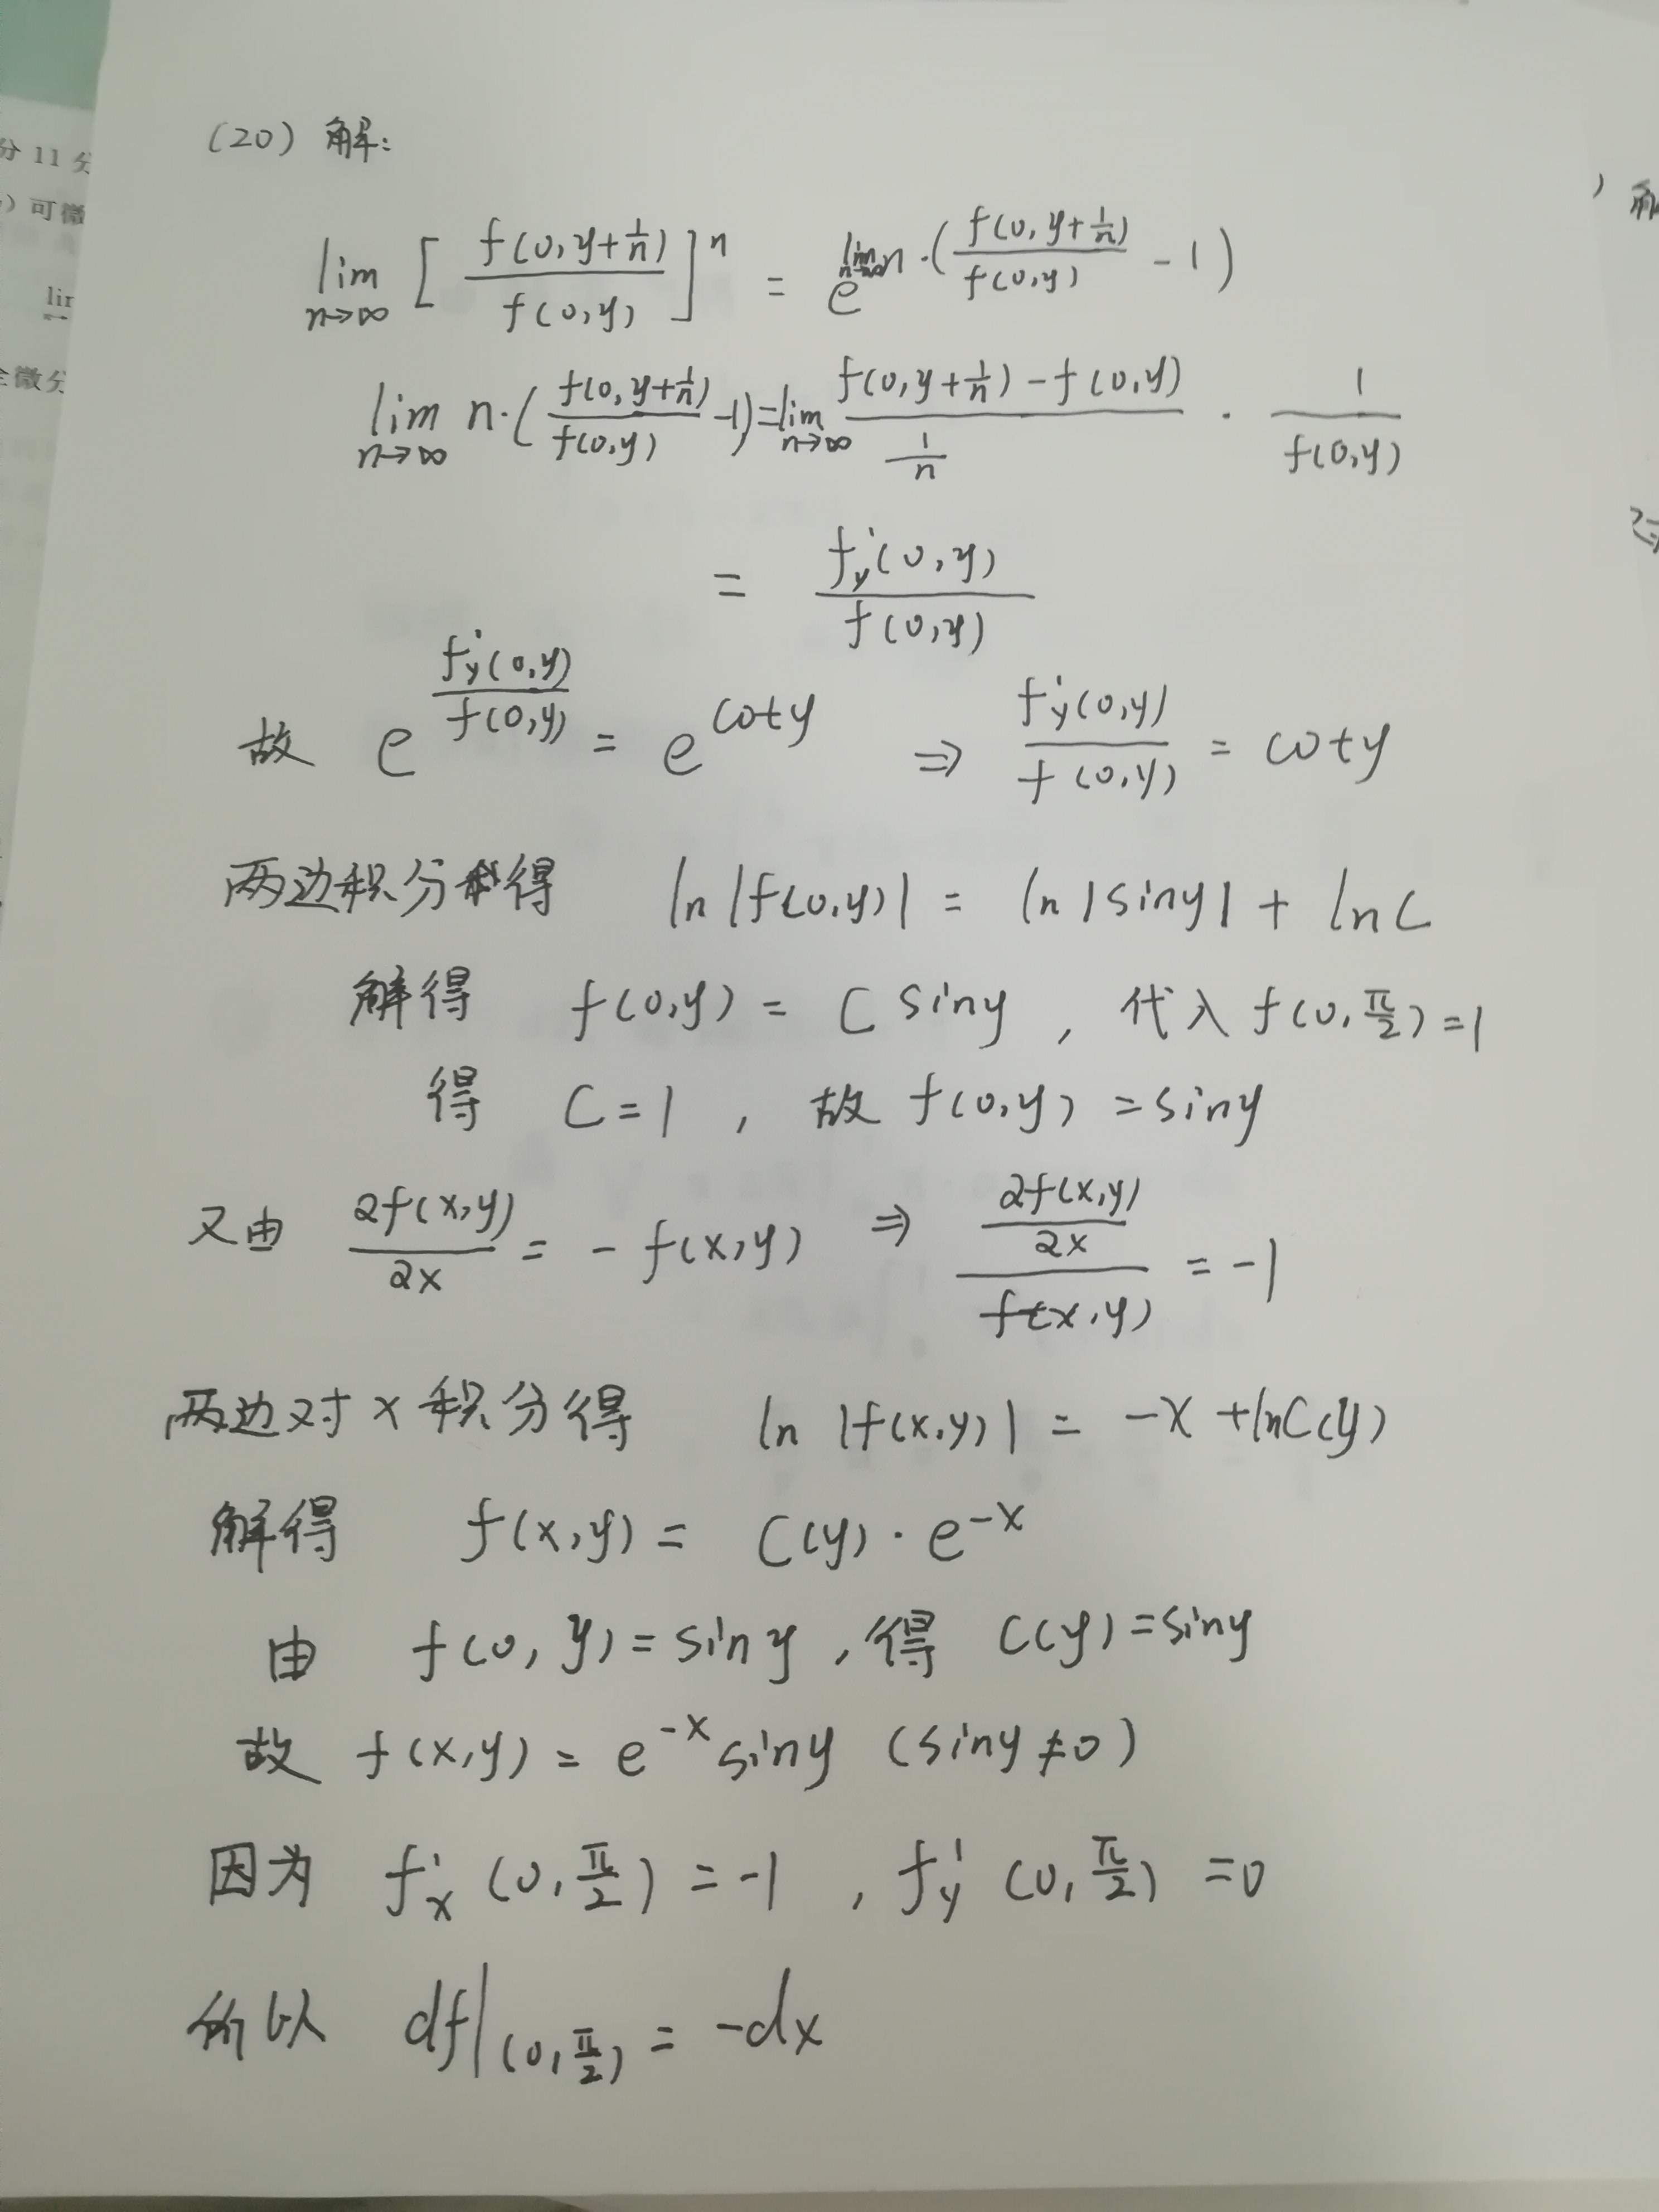 分 11 分
)可微
lir
全微分
(20) 解:
lim n→∞ [f(0,y+1/n)/f(0,y)]^n = e^{lim n→∞ n·(f(0,y+1/n)/f(0,y) - 1)}
lim n→∞ n·(f(0,y+1/n)/f(0,y) - 1) = lim n→∞ (f(0,y+1/n) - f(0,y))/(1/n) · 1/f(0,y)
= f'y(0,y)/f(0,y)
故 e^{f'y(0,y)/f(0,y)} = e^{coty} ⇒ f'y(0,y)/f(0,y) = coty
两边积分得 ln|f(0,y)| = ln|siny| + lnC
解得 f(0,y) = C siny , 代入 f(0,π/2) = 1
得 C = 1 , 故 f(0,y) = siny
又由 ∂f(x,y)/∂x = - f(x,y) ⇒ (∂f(x,y)/∂x)/f(x,y) = -1
两边对 x 积分得 ln|f(x,y)| = -x + lnC(y)
解得 f(x,y) = C(y)·e^{-x}
由 f(0,y) = siny , 得 C(y) = siny
故 f(x,y) = e^{-x} siny (siny≠0)
因为 f'x(0,π/2) = -1 , f'y(0,π/2) = 0
所以 df|(0,π/2) = -dx